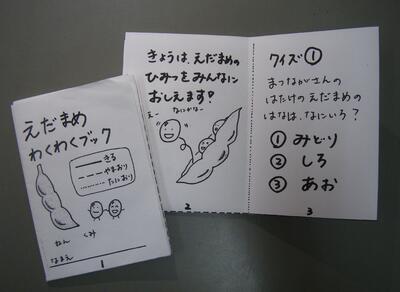 えだまめ
わくわくブック
きる
やまおり
たにおり
ねん くみ
なまえ
1
きょうは、えだまめの
ひみつをみんなに
おしえます!
えー
なにかなー
2
クイズ①
まつながさんの
はたけのえだまめの
はなは、なにいろ?
① みどり
② しろ
③ あお
3